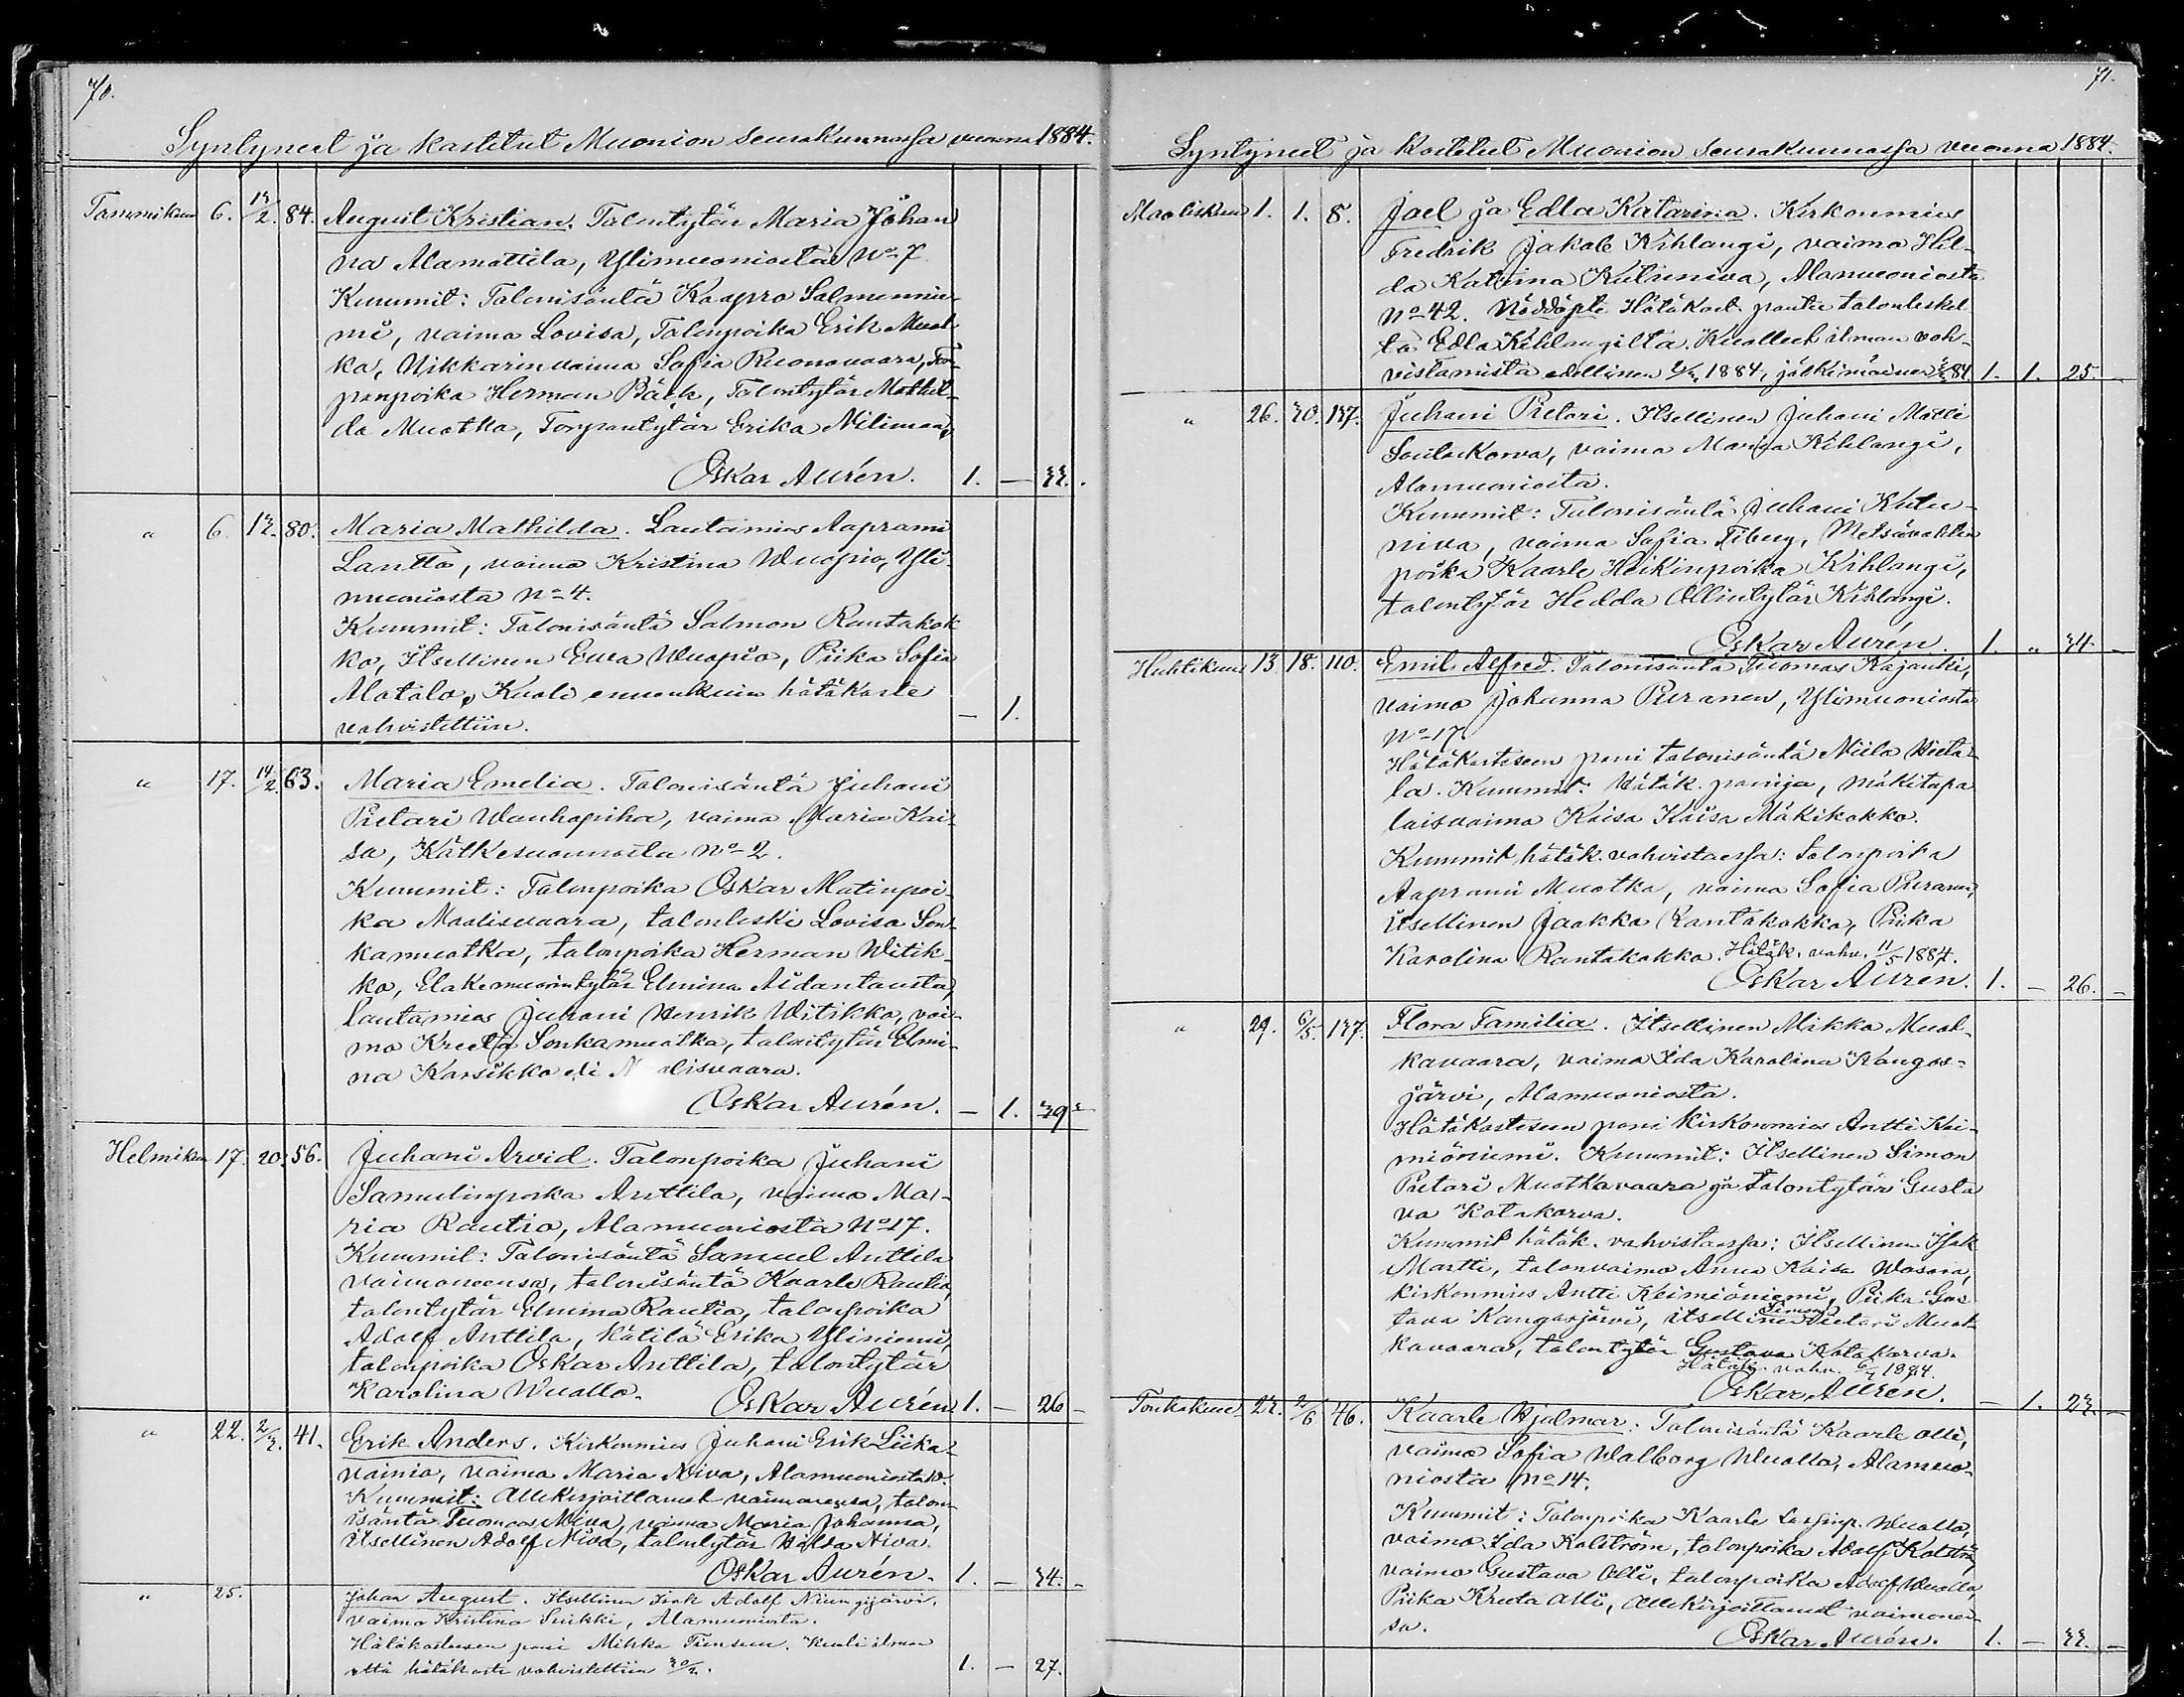 70.
Syntyneet ja kastetut Muonion seurakunnassa vuonna 1884.
Tammikuu 6. 13/2. 84. August Kristian. Talontytär Maria Johan
na Alamattila, Ylimuoniosta No 7.
Kummit: Talonisäntä Kaapro Salmennie-
mi, vaimo Lovisa, Talonpoika Erik Muot
ka, Nikkarinvaimo Sofia Ruonavaara, Tor-
panpoika Herman Bäck, Talontytär Mathil-
da Muotka, Torpantytär Erika Nilimaa,
Oskar Aurén. 1. — 33.
" 6. 13. 80. Maria Mathilda. Lautamies Aaprami
Lantto, vaimo Kristina Wuopio, Yli-
muoniosta No 4.
Kummit: Talonisäntä Salmon Rantakok
ko, Itsellinen Ewa Wuopio, Piika Sofia
Alatalo, Kuoli ennenkuin hätäkaste
vahvistettiin. — 1.
" 17. 14/2. 63. Maria Emelia. Talonisäntä Juhani
Pietari Wanhapiha, vaimo Maria Kai-
sa, Kätkesuannosta No 2.
Kummit: Talonpoika Oskar Matinpoi-
ka Maalisvaara, talonleski Lovisa Son-
kamuotka, talonpoika Herman Witik-
ko, Elakemuorintytär Elmina Aidantausta,
lautamies Juhani Henrik Witikko, vai-
mo Kreeta Sonkamuotka, talontytär Elmi-
na Karsikko eli alisvaara.
Oskar Aurén. — 1. 39
Helmikuu 17. 20. 56. Juhani Arvid. Talonpoika Juhani
Samulinpoika Anttila, vaimo Ma-
ria Rautio, Alamuoniosta No 17.
Kummit: Talonisäntä Samuel Anttila
vaimoneensa, talonisäntä Kaarle Rautio,
talontytär Elmina Rautio, talonpoika
Adolf Anttila, Kätilö Erika Yliniemi,
talonpoika Oskar Anttila, talontytär
Karolina Wuollo. Oskar Aurén 1. — 26 —
" 22. 2/3. 41. Erik Anders. Kirkonmies Juhani Erik Liika-
vainio, vaimo Maria Niva, Alamuoniosta 10.
Kummit: Allekirjoittanut vaimoneensa, talon-
isäntä Tuomas Niva, vaimo Maria Johanna,
itsellinen Adolf Niva, talontytär Hilda Niva.
Oskar Aurén. 1. — 34. —
" 25. Johan August. Itsellinen Isak Adolf Niungijärvi,
vaimo Kristina Suikki, Alamuoniosta.
Hätäkasteeseen pani Mikko Tiensuu. Kuoli ilman
että hätäkaste vahvistettiin 30/3. 1. — 27.
71.
Syntyneet ja kastetut Muonion seurakunnassa vuonna 1884.
Maaliskuu 1. 1. 8. Jael ja Edla Katarina. Kirkonmies
Fredrik Jakob Kihlangi, vaimo Hil-
da Katrina Kutuniva, Alamuoniosta
No 42. Nöddöpte Hätäkast. pantu talonleskel
tä Edla Kihlangilta. Kuolleet ilman vah-
vistamista edellinen 1884, jälkimäinen 84. 1. 1. 25.
" 26. 30. 137. Juhani Pietari. Itsellinen Juhani Matti
Soutukorva, vaimo Maria Kihlangi,
Alamuoniosta.
Kummit: Talonisäntä Juhani Kutu-
niva, vaimo Sofia Fiberg, Metsävahtin
poika Kaarle Heikinpoika Kihlangi,
talontytär Hedda Ollintytär Kihlangi.
Oskar Aurén. 1. " 34. —
Huhtikuu 13. 18. 110. Emil Alfred. Talonisäntä Tuomas Kajanki,
vaimo Johanna Puranen, Ylimuoniosta
No 17.
Hätäkasteseen pani talonisäntä Niila Hieta-
la. Kummit: Hätäk. panija, mäkitupa
laisvaimo Kaisa Kaisa Mäkikokko.
Kummit hätäk. vahvistaessa: talonpoika
Aaprami Muotka, vaimo Sofia Puranen,
itsellinen Jaakko Rantakokko, Piika
Karolina Rantakokko. Hätäk. vahv. 11/5 1884.
Oskar Aurén. 1. — 26. —
" 29. 6/5. 137. Flora Familia. Itsellinen Mikko Muot-
kavaara, vaimo Ida Karolina Kangos-
järvi, Alamuoniosta.
Hätäkasteseen pani kirkonmies Antti Kei-
miöniemi. Kummit: Itsellinen Simon
Pietari Muotkavaara ja talontytär Gusta
va Katakorva.
Kummit hätäk. vahvistaessa: Itsellinen Isak
Martti, talonvaimo Anna Kaisa Wasara,
kirkonmies Antti Keimiöniemi, Piika Gus
tava Kangosjärvi, itsellinen Simon Pietari Muot-
kavaara, talontytär Gustava Katakorva.
Hätäk. vahv. 6/7 1884.
Oskar Aurén. — 1. 23. —
Toukokuu 23. 2/6 46. Kaarle Hjalmar. Talonisäntä Kaarle Olli,
vaimo Sofia Walborg Wuollo, Alamuo-
niosta No 14.
Kummit: Talonpoika Kaarle Lassinp. Wuollo,
vaimo Ida Kolström, talonpoika Adolf Kolström,
vaimo Gustava Olli, talonpoika Adolf Wuollo,
Piika Kreeta Olli, Allekirjoittanut vaimonen-
sa.
Oskar Aurén. 1. — 33. —